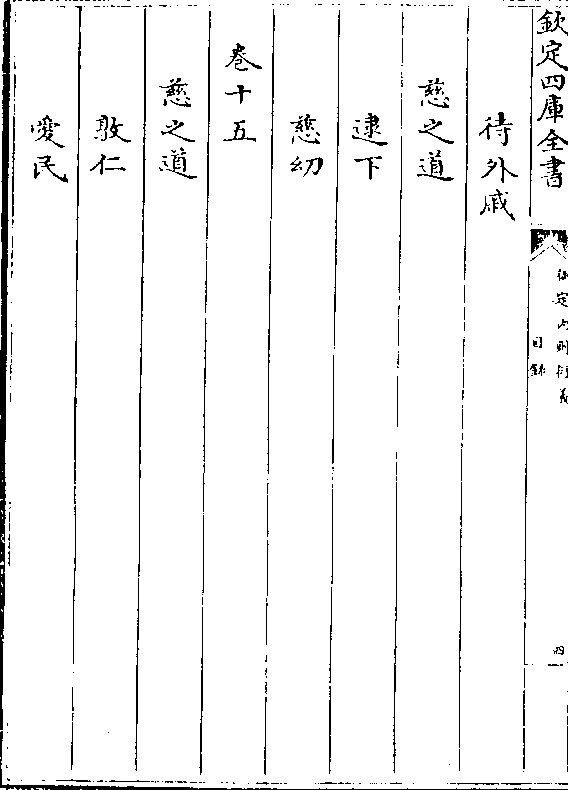 欽定四庫全書
御定內則衍義
目錄
四
待外戚
慈之道
逮下
慈幼
卷十五
慈之道
敦仁
愛民